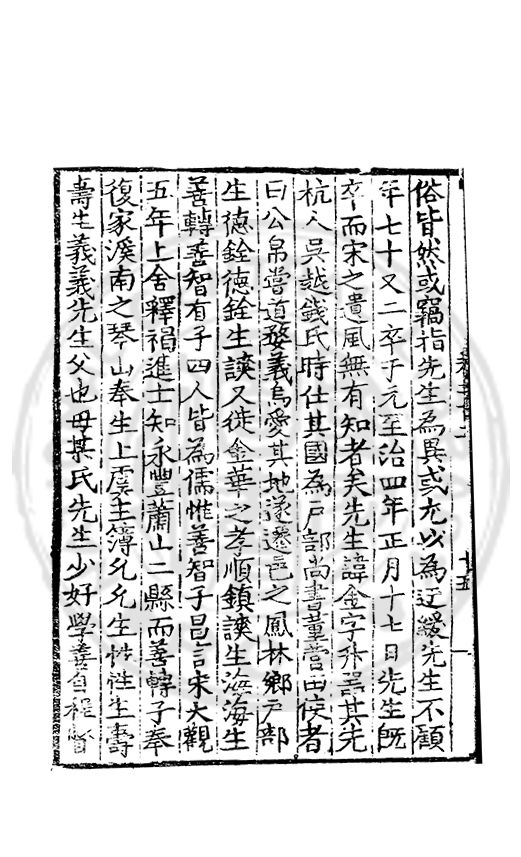 俗皆然或竊指先生為異或尤以為迂緩先生不顧
年七十又二卒于元至治四年正月十七日先生既
卒而宋之遺風無有知者矣先生諱金字升器其先
杭人吳越錢氏時仕其國為戶部尚書董營田使者
曰公帛嘗道婺義烏愛其地遂遷邑之鳳林鄉戶部
生德銓德銓生諛又徙金華之孝順鎮諛生海海生
善轉善智有子四人皆為儒惟善智子昌言宋大觀
五年上舍釋褐進士知永豐蕭山二縣而善轉子奉
復家溪南之琴山奉生上虞主簿允允生性性生壽
壽生義義先生父也母某氏先生少好學善自程督
十五